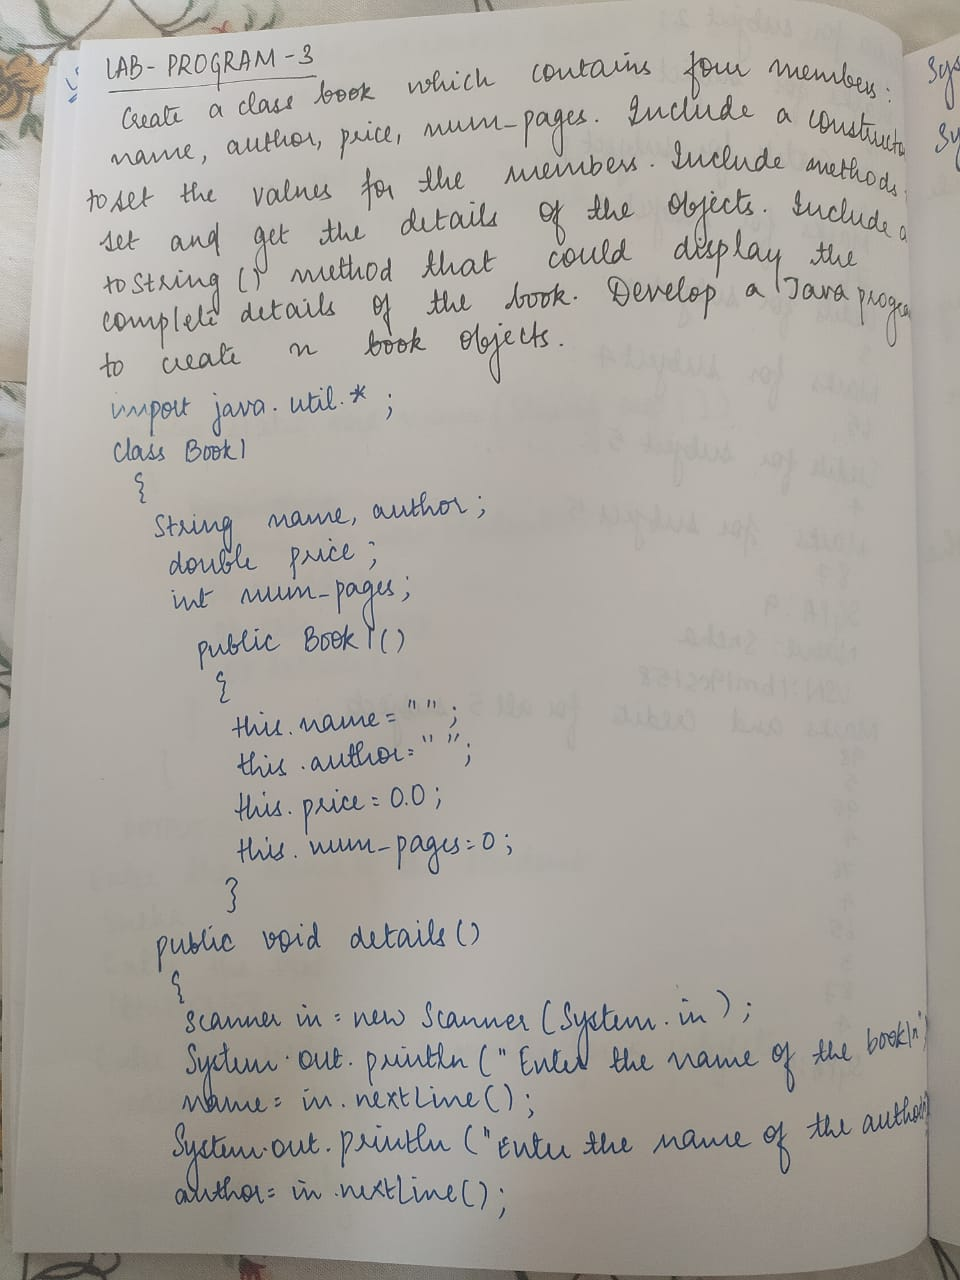 LAB- PROGRAM -3
Create a class book which contains four members:
name, author, price, num_pages. Include a constructo
to set the values for the members. Include methods
set and get the details of the objects. Include a
toString () method that could display the
complete details of the book. Develop a Java progra
to create n book objects.
import java.util.* ;
class Book1
{
String name, author;
double price;
int num_pages;
public Book1()
{
this.name=" ";
this.author=" ";
this.price=0.0;
this.num_pages=0;
}
public void details()
{
Scanner in = new Scanner (System.in);
System.out.println ("Enter the name of the book\n"
name = in.nextLine();
System.out.println ("Enter the name of the author
author= in.nextLine();
Sys
Sy